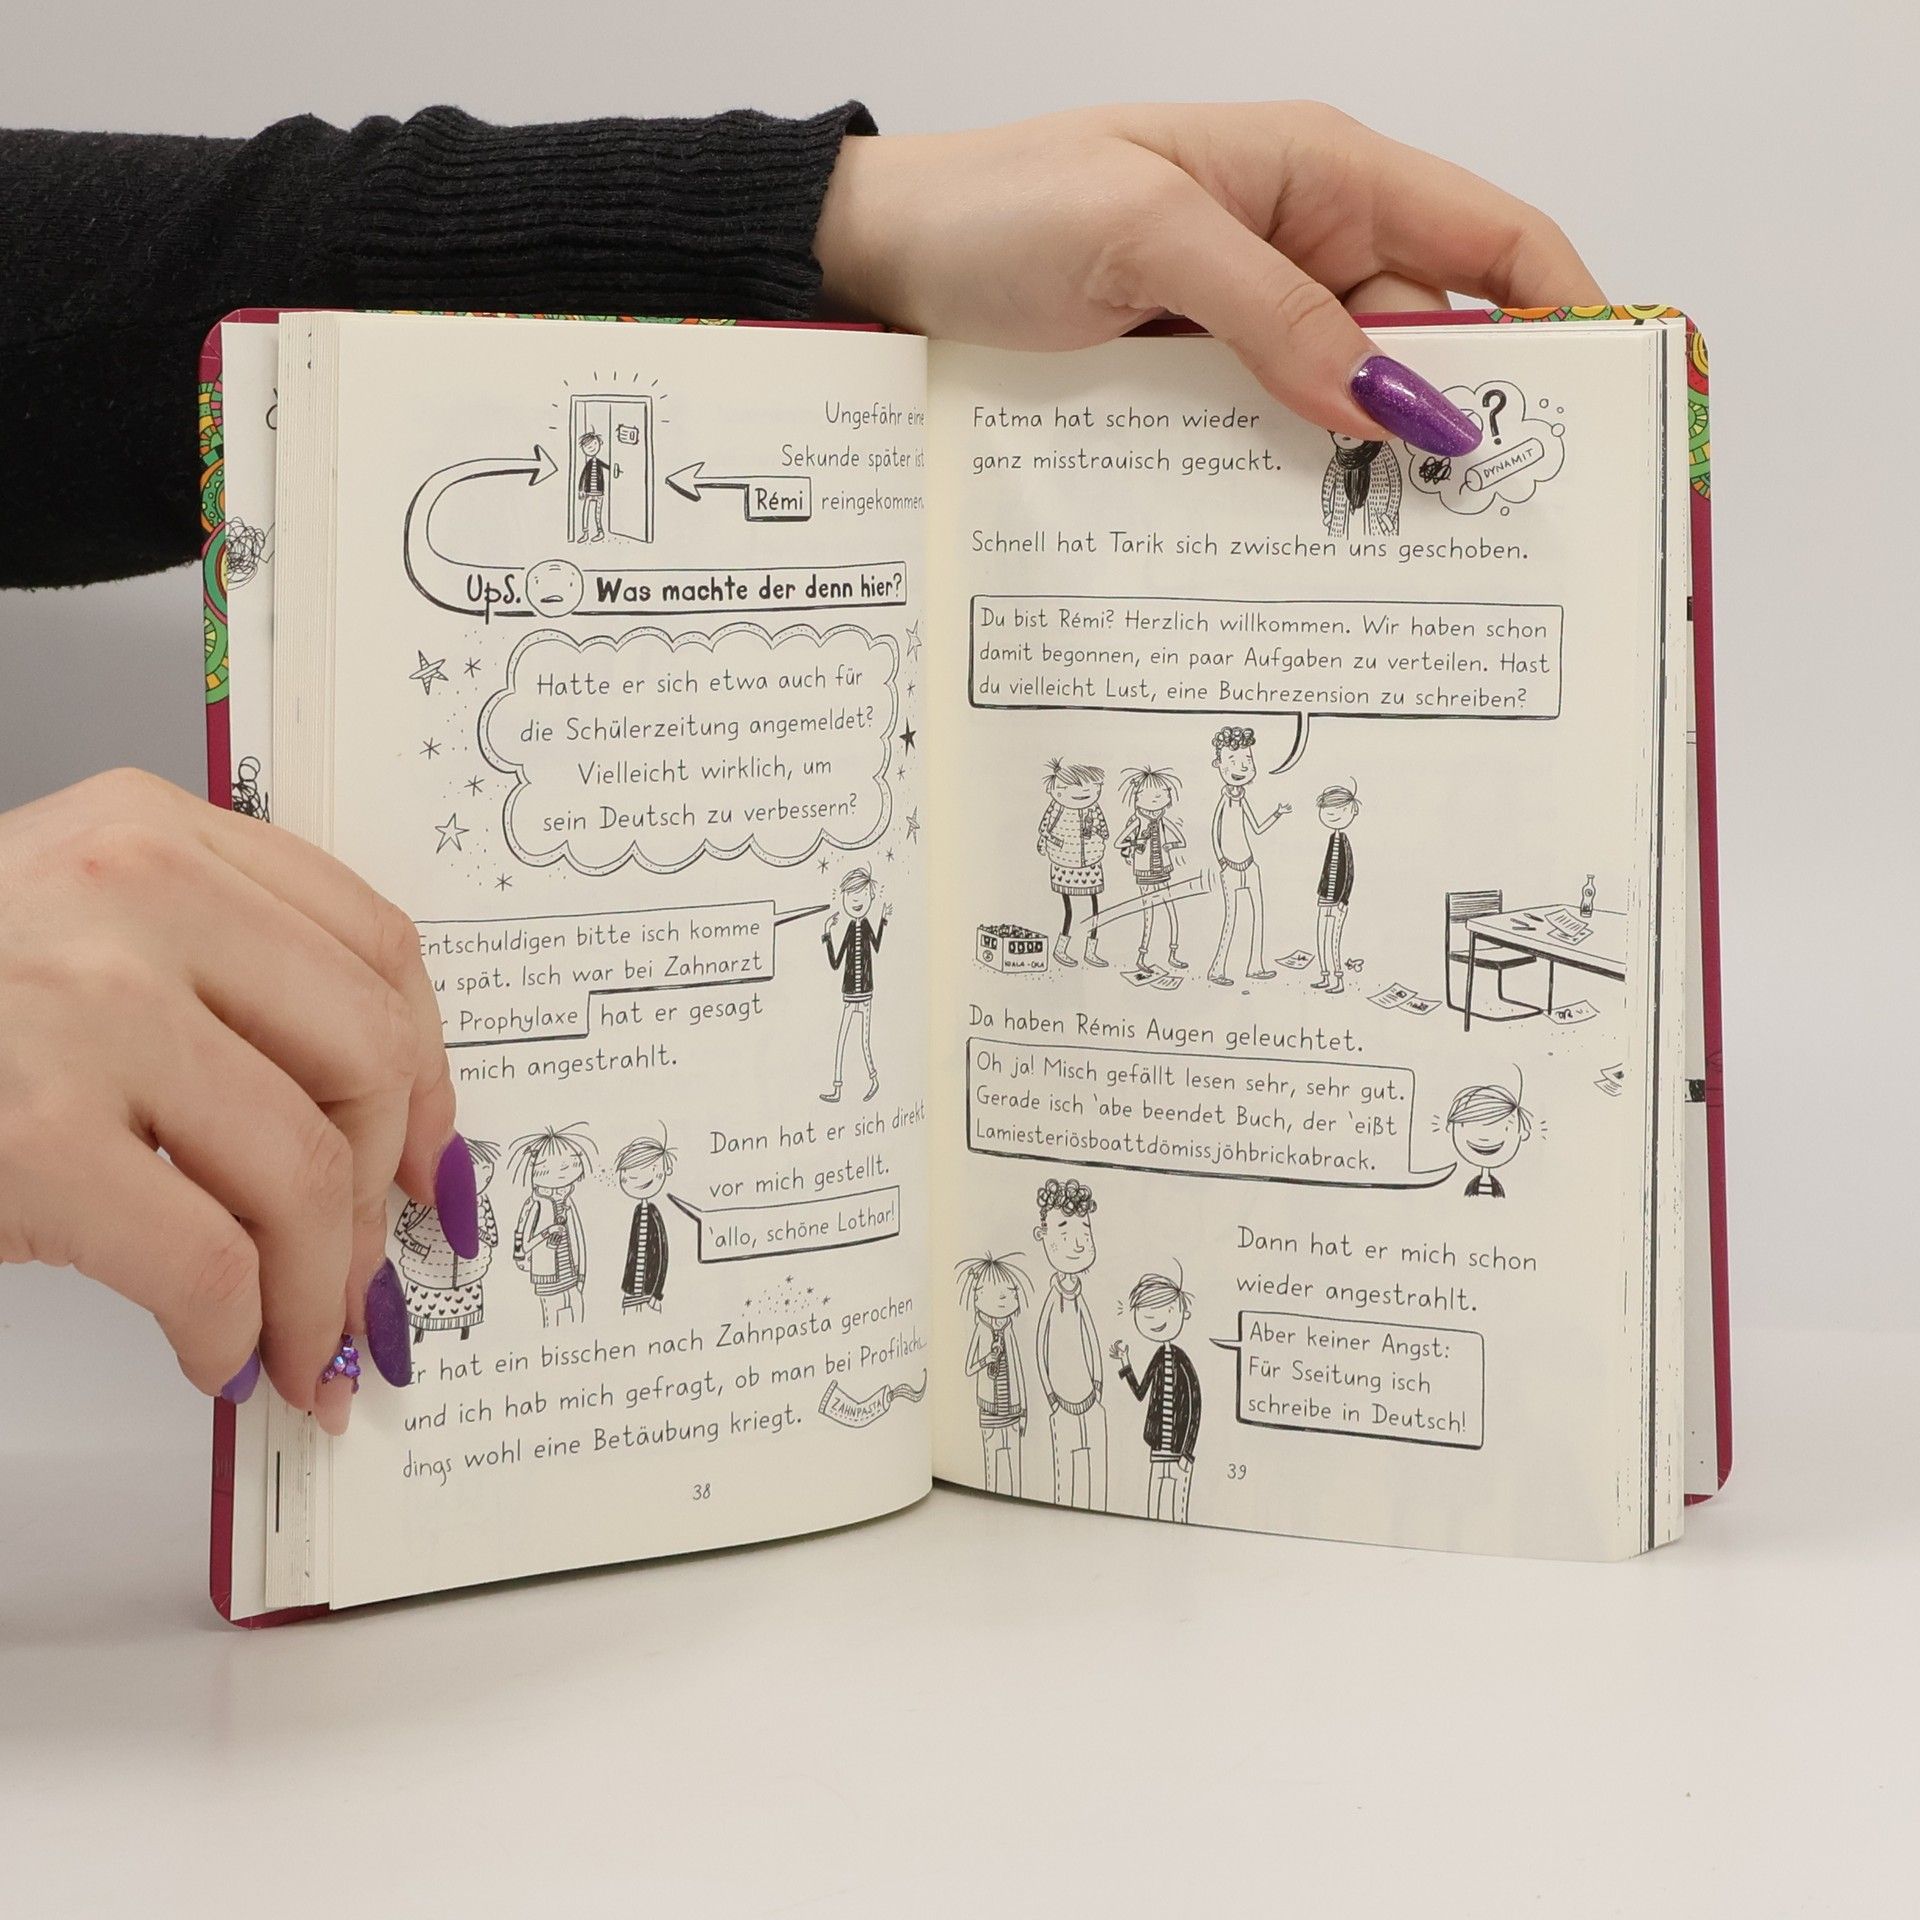 Ungefähr eine
Sekunde später ist
Rémi reingekommen.
Ups. Was machte der denn hier?
Hatte er sich etwa auch für
die Schülerzeitung angemeldet?
Vielleicht wirklich, um
sein Deutsch zu verbessern?
Entschuldigen bitte isch komme
spät. Isch war bei Zahnarzt
Prophylaxe hat er gesagt
mich angestrahlt.
Dann hat er sich direkt
vor mich gestellt.
'allo, schöne Lothar!
Er hat ein bisschen nach Zahnpasta gerochen
und ich hab mich gefragt, ob man bei Profilachs-
dings wohl eine Betäubung kriegt.
ZAHNPASTA
38
Fatma hat schon wieder
ganz misstrauisch geguckt.
?
DYNAMIT
Schnell hat Tarik sich zwischen uns geschoben.
Du bist Rémi? Herzlich willkommen. Wir haben schon
damit begonnen, ein paar Aufgaben zu verteilen. Hast
du vielleicht Lust, eine Buchrezension zu schreiben?
Da haben Rémis Augen geleuchtet.
Oh ja! Misch gefällt lesen sehr, sehr gut.
Gerade isch 'abe beendet Buch, der 'eißt
Lamiesteriösboattdömissjöhbrickabrack.
Dann hat er mich schon
wieder angestrahlt.
Aber keiner Angst:
Für Sseitung isch
schreibe in Deutsch!
39